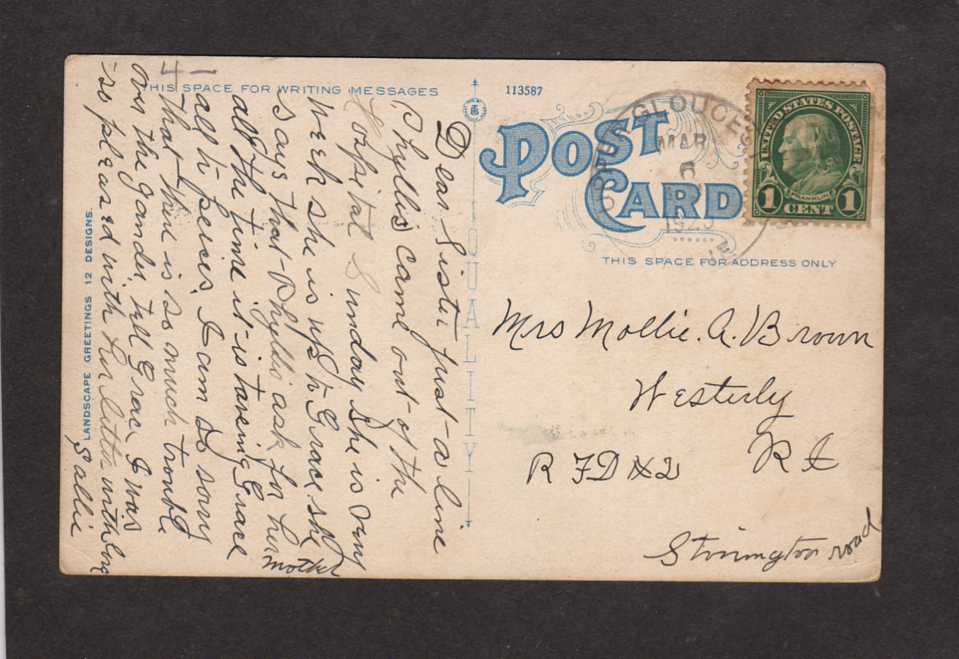 THIS SPACE FOR WRITING MESSAGES
113587
POST CARD
GLOUCES
MAR
6
UNITED STATES POSTAGE
FRANKLIN
1 CENT 1
THIS SPACE FOR ADDRESS ONLY
QUALITY
LANDSCAPE GREETINGS 12 DESIGNS.
Dear Sister just a line
Phyllis came out of the
Hospital Sunday she is very
weak she is up to Grace she
says that Phyllis ask for her
mother
all the time it is taking Grace
all to peices, I am so sorry
that there is so much trouble
over the gander tell Grace I was
so pleased with her letter with love
Sallie
Mrs Mollie. A. Brown
Westerly
R I
R F D No 2
Stonington road